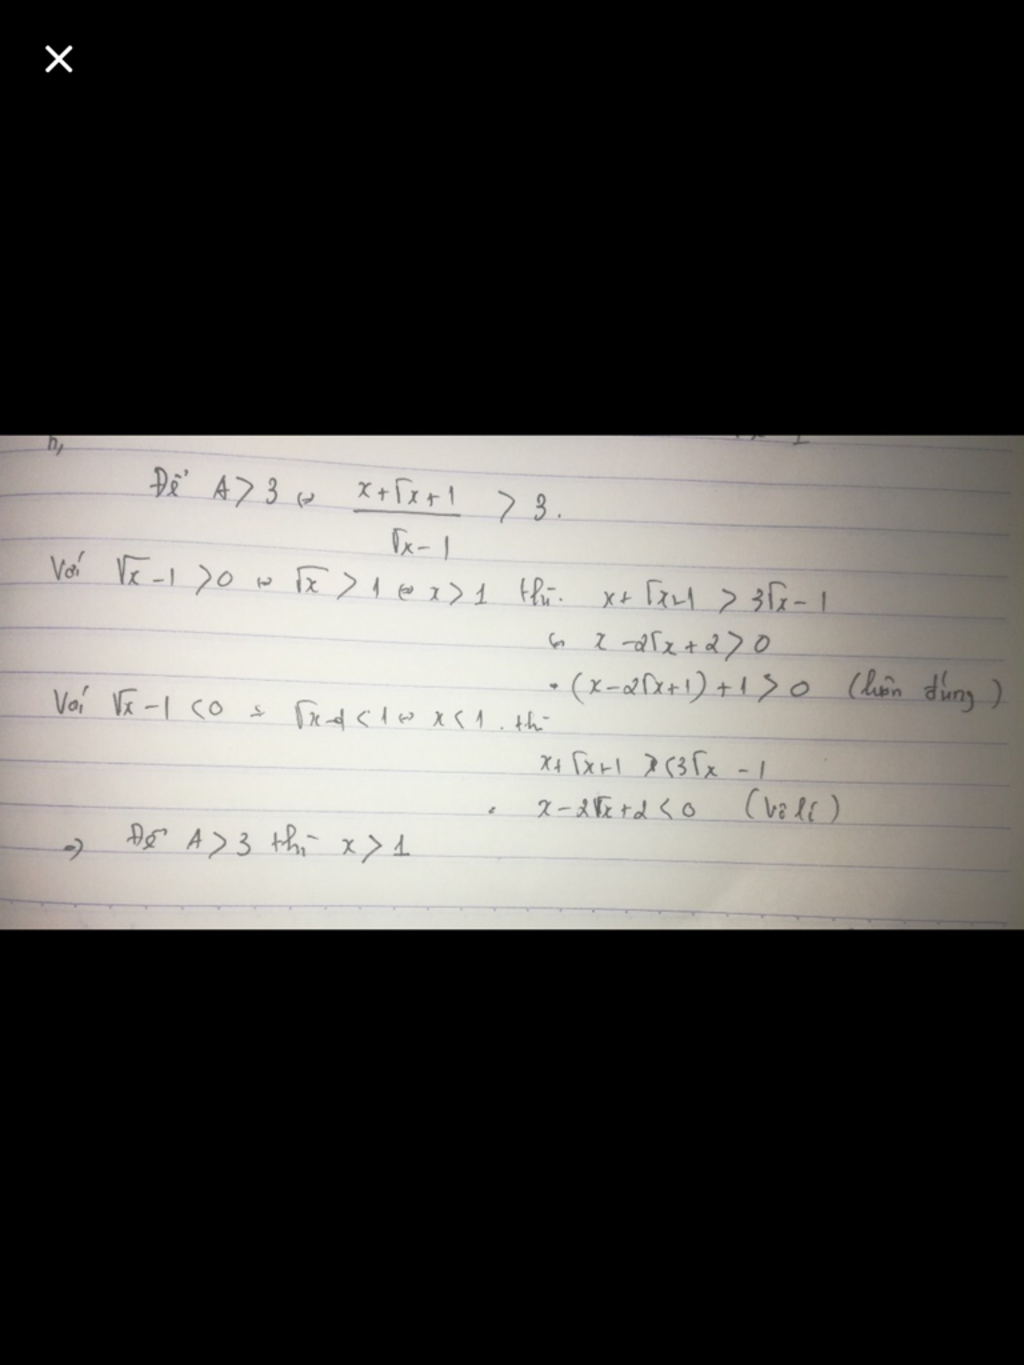 b,
Để A > 3 ⇔ (x+√x+1)/(√x-1) > 3.
Với √x-1 >0 ⇔ √x > 1 ⇔ x > 1 thì. x+√x+1 > 3√x-1
⇔ x-2√x+2 > 0
• (x-2√x+1)+1 > 0 (luôn đúng)
Với √x-1 < 0 ⇔ √x < 1 ⇔ x < 1. thì
x+√x+1 < 3√x-1
x-2√x+2 < 0 (Vô lí)
⇒ Để A > 3 thì x > 1